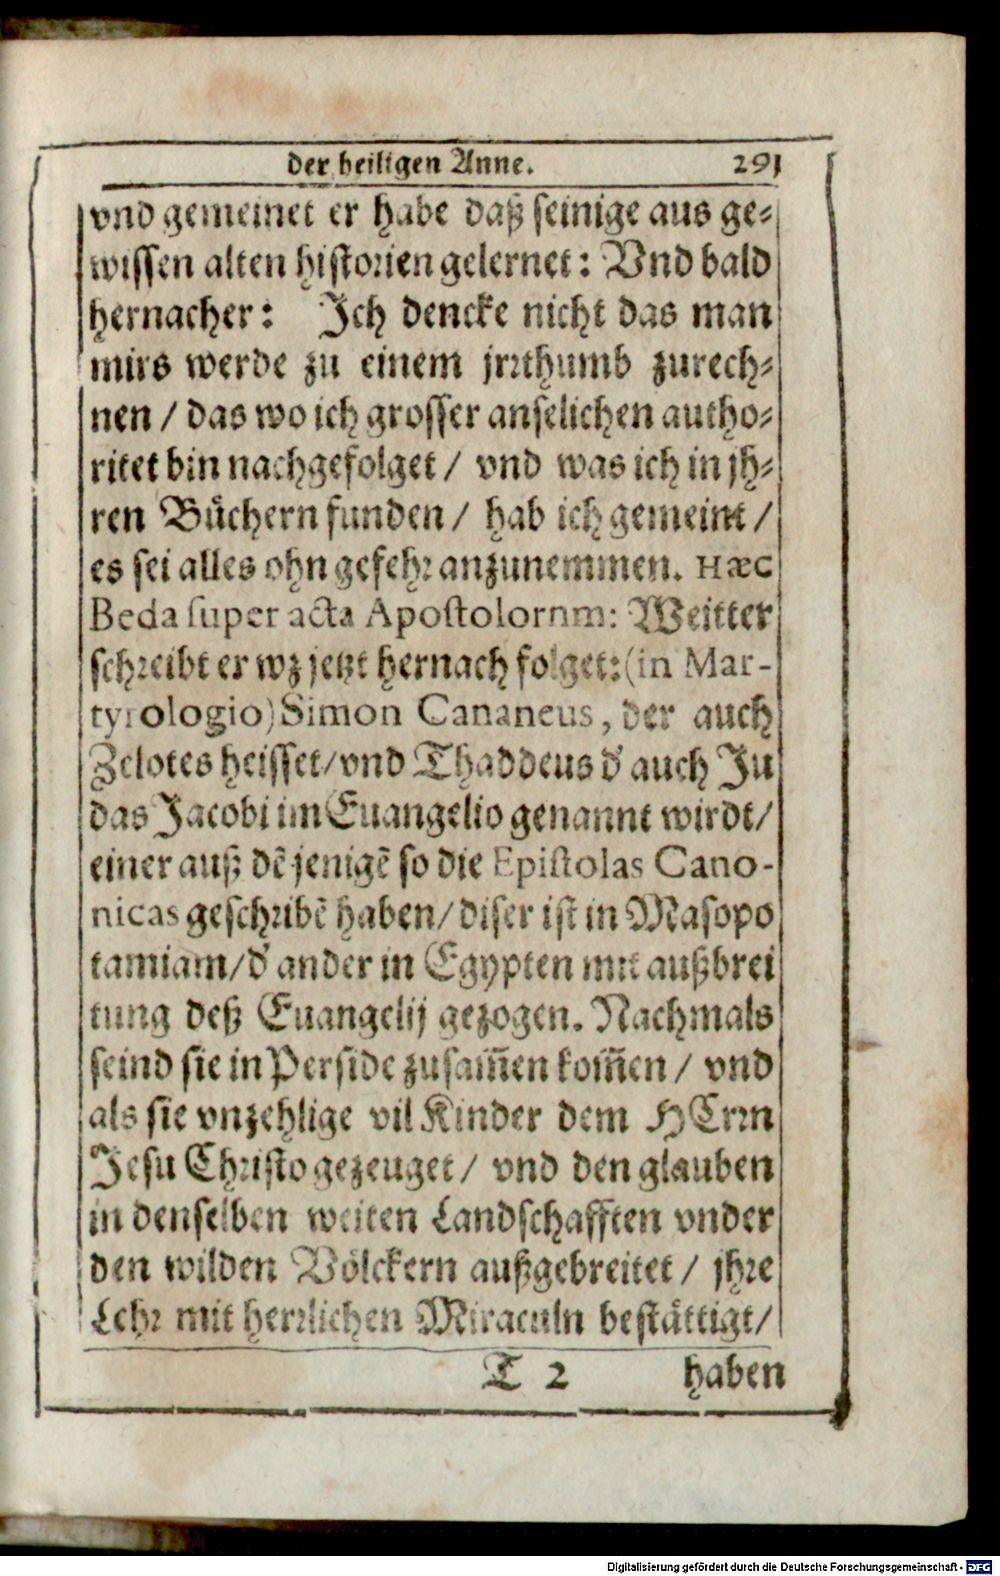 der heiligen Anne. 291
vnd gemeinet er habe daß seinige aus ge⸗
wissen alten historien gelernet: Vnd bald
hernacher: Jch dencke nicht das man
mirs werde zu einem jrrthumb zurech⸗
nen / das wo ich grosser anselichen autho⸗
ritet bin nachgefolget / vnd was ich in jh⸗
ren Bůchern funden / hab ich gemeint /
es sei alles ohn gefehr anzunemmen. HæC
Beda super acta Apostolornm: Weitter
schreibt er wz jetzt hernach folget: (in Mar-
tyrologio) Simon Cananeus, der auch
Zelotes heisset / vnd Thaddeus d' auch Ju
das Jacobi im Euangelio genannt wirdt /
einer auß dẽ jenigẽ so die Epistolas Cano-
nicas geschribẽ haben / diser ist in Masopo
tamiam / d' ander in Egypten mit außbrei
tung deß Euangelij gezogen. Nachmals
seind sie in Perside zusam̃en kom̃en / vnd
als sie vnzehlige vil Kinder dem HErrn
Jesu Christo gezeuget / vnd den glauben
in denselben weiten Landschafften vnder
den wilden Vőlckern außgebreitet / jhre
Lehr mit herrlichen Miraculn bestättigt /
T 2 haben
Digitalisierung gefördert durch die Deutsche Forschungsgemeinschaft - DFG